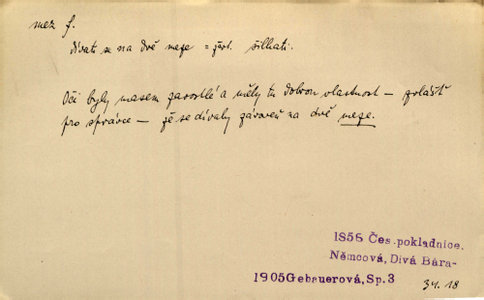 mez f.
dívati se na dvě meze = žert. šilhati.
Oči byly masem zarostlé a měly tu dobrou vlastnost – zvlášť
pro správce – že se dívaly zároveň na dvě meze.
1856 Čes. pokladnice.
Němcová, Divá Bára-
1905 Gebauerová, Sp. 3
34. 18